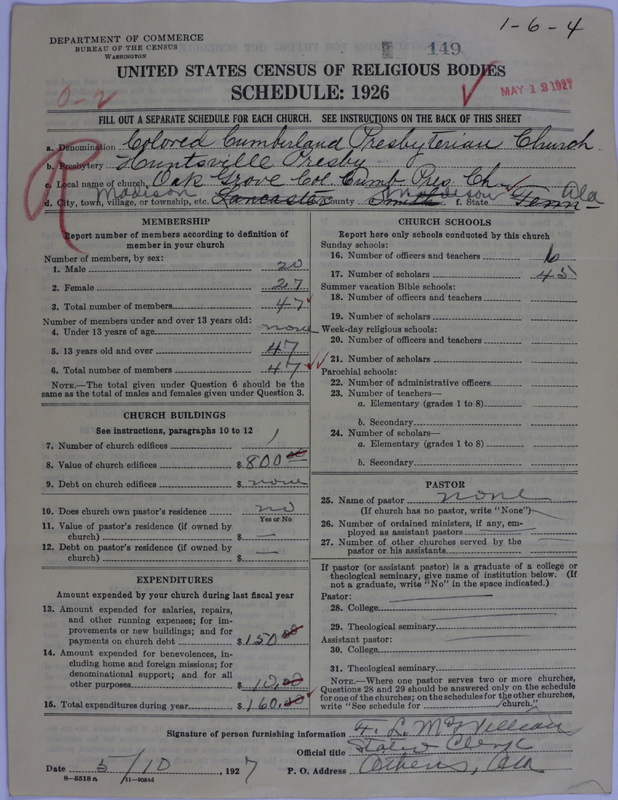 1-6-4
DEPARTMENT OF COMMERCE
BUREAU OF THE CENSUS
WASHINGTON
149
UNITED STATES CENSUS OF RELIGIOUS BODIES
SCHEDULE: 1926
MAY 12 1927
0-2
FILL OUT A SEPARATE SCHEDULE FOR EACH CHURCH. SEE INSTRUCTIONS ON THE BACK OF THIS SHEET
a. Denomination Colored Cumberland Presbyterian Church
b. Presbytery Huntsville Presby
c. Local name of church Oak Grove Col. Cumb Pres. Ch.
R Madison Madison Ala
d. City, town, village, or township, etc. Lancaster County Smith f. State Tenn
MEMBERSHIP
Report number of members according to definition of
member in your church
Number of members, by sex:
1. Male 20
2. Female 27
3. Total number of members 47
Number of members under and over 13 years old:
4. Under 13 years of age none
5. 13 years old and over 47
6. Total number of members 47
NOTE.—The total given under Question 6 should be the
same as the total of males and females given under Question 3.
CHURCH BUILDINGS
See instructions, paragraphs 10 to 12
7. Number of church edifices 1
8. Value of church edifices $ 800 00
9. Debt on church edifices $ none
10. Does church own pastor's residence no
Yes or No
11. Value of pastor's residence (if owned by
church) $ —
12. Debt on pastor's residence (if owned by
church) $ —
EXPENDITURES
Amount expended by your church during last fiscal year
13. Amount expended for salaries, repairs,
and other running expenses; for im-
provements or new buildings; and for
payments on church debt $ 150 00
14. Amount expended for benevolences, in-
cluding home and foreign missions; for
denominational support; and for all
other purposes $ 10.00
15. Total expenditures during year $ 160.00
CHURCH SCHOOLS
Report here only schools conducted by this church
Sunday schools:
16. Number of officers and teachers 6
17. Number of scholars 45
Summer vacation Bible schools:
18. Number of officers and teachers
19. Number of scholars
Week-day religious schools:
20. Number of officers and teachers
21. Number of scholars
Parochial schools:
22. Number of administrative officers
23. Number of teachers—
a. Elementary (grades 1 to 8)
b. Secondary
24. Number of scholars—
a. Elementary (grades 1 to 8)
b. Secondary
PASTOR
25. Name of pastor none
(If church has no pastor, write "None")
26. Number of ordained ministers, if any, em-
ployed as assistant pastors
27. Number of other churches served by the
pastor or his assistants
If pastor (or assistant pastor) is a graduate of a college or
theological seminary, give name of institution below. (If
not a graduate, write "No" in the space indicated.)
Pastor:
28. College
29. Theological seminary
Assistant pastor:
30. College
31. Theological seminary
NOTE.—Where one pastor serves two or more churches,
Questions 28 and 29 should be answered only on the schedule
for one of the churches; on the schedules for the other churches,
write "See schedule for church."
Signature of person furnishing information F. L. McWilliams
Official title Stated Clerk
Date 5/10, 1927 P. O. Address Athens, Ala
8—5518 a 11—9054d